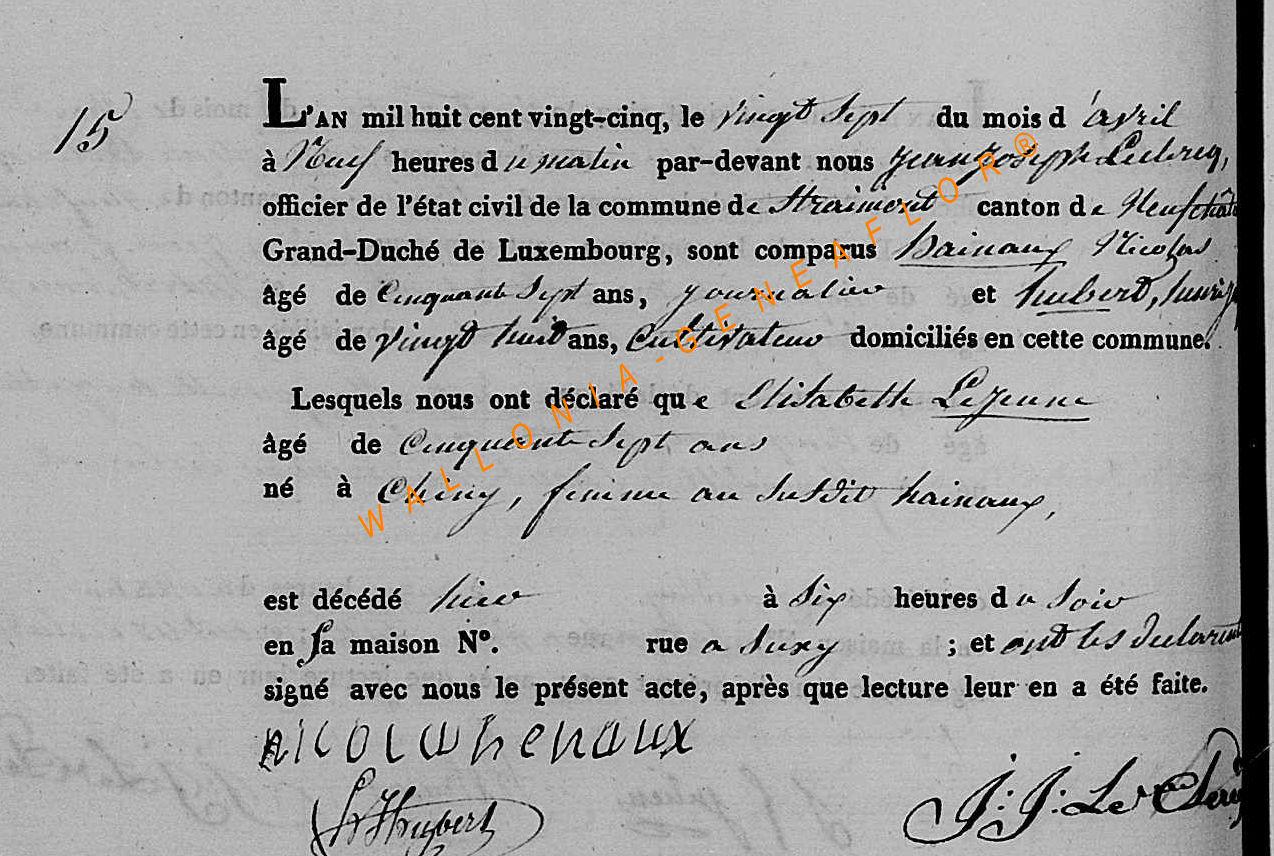 15
L'AN mil huit cent vingt-cinq, le vingt Sept du mois d'avril
à Neuf heures du matin par-devant nous Jean Joseph Leclercq,
officier de l'état civil de la commune de Straimont canton de Neufchât
Grand-Duché de Luxembourg, sont comparus hainaux Nicolas
âgé de Cinquante Sept ans, journalier et hubert,
âgé de vingt huit ans, Cultivateur domiciliés en cette commune.
Lesquels nous ont déclaré que Elisabeth LeJeune
âgé de Cinquante Sept ans
né à Chiny, femme au Susdit hainaux,
est décédé hier à Six heures du Soir
en sa maison N°. rue a Suxy ; et ont les declarant
signé avec nous le présent acte, après que lecture leur en a été faite.
nicola henaux
Hubert J: J: Le
WALLONIA-GENEAFLOR®